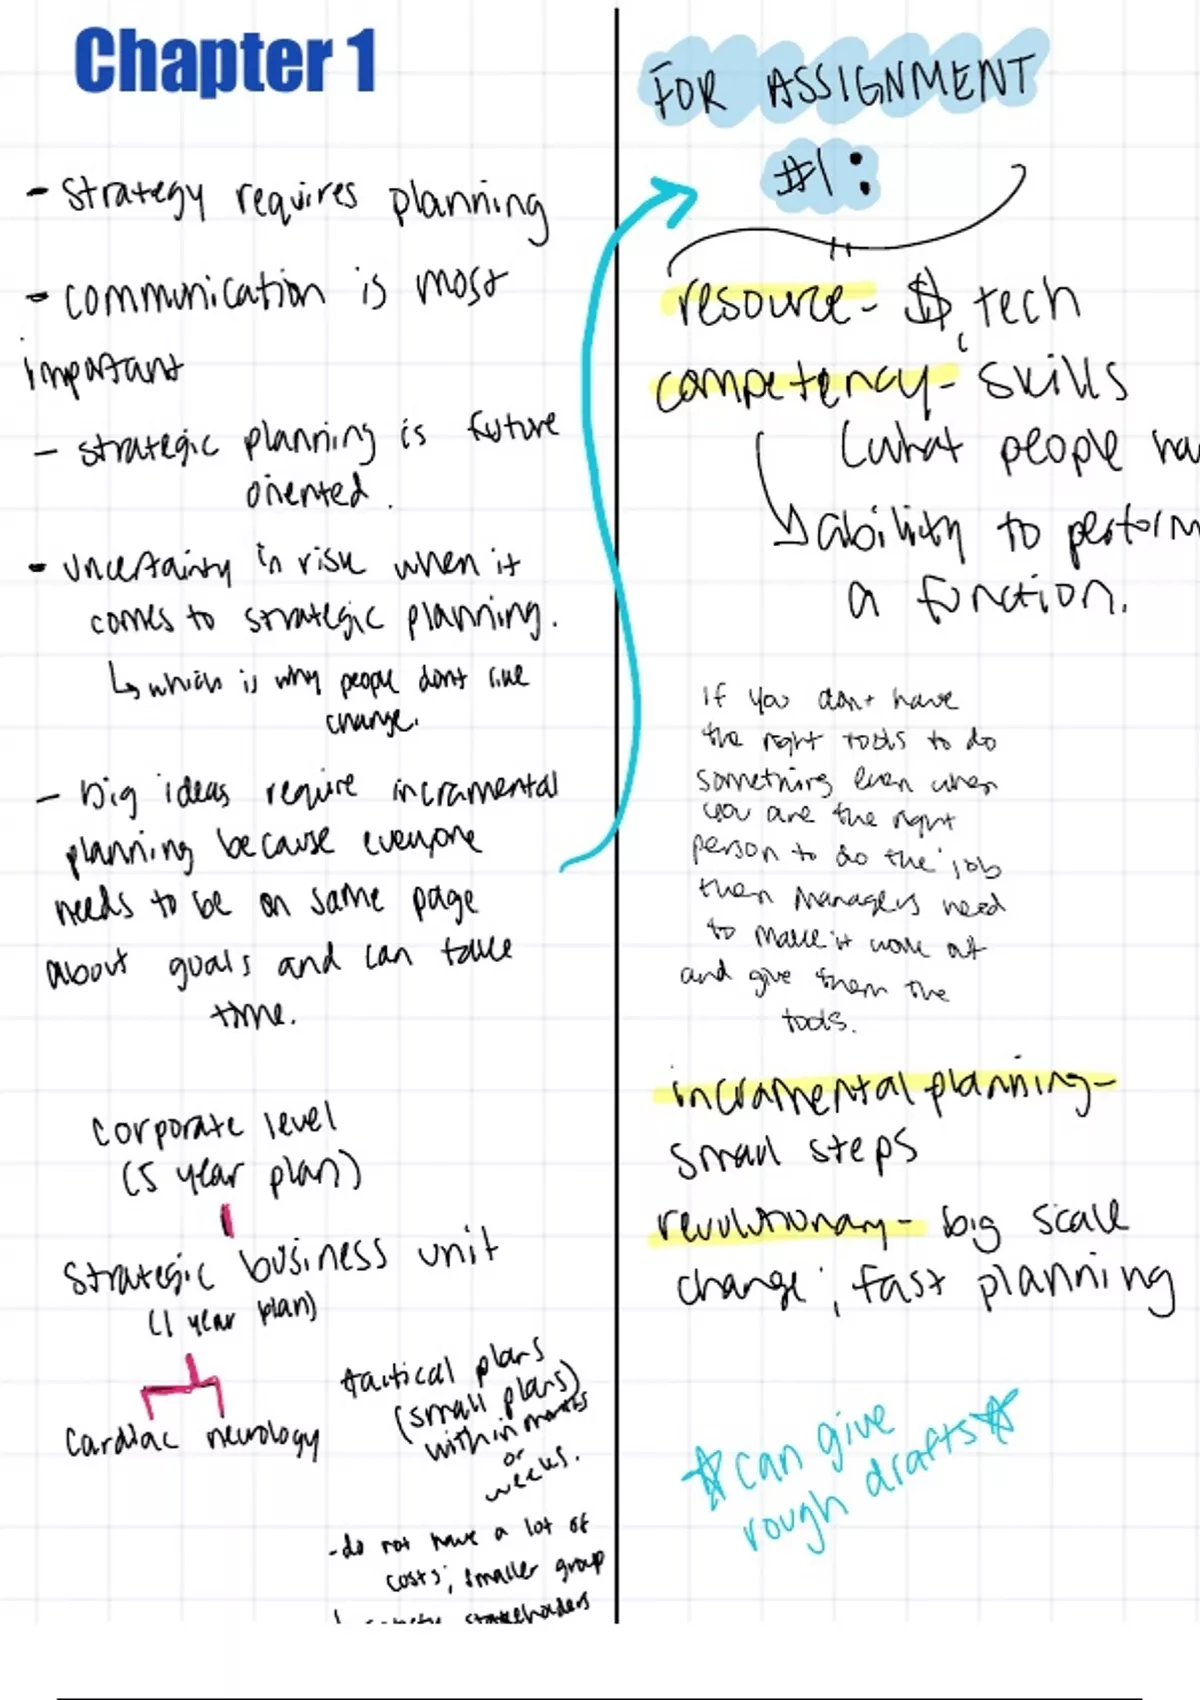 Chapter 1
- strategy requires planning
- communication is most
important
- strategic planning is future
oriented.
- uncertainty in risk when it
comes to strategic planning.
↳ which is why people dont like
change.
- big ideas require incramental
planning because everyone
needs to be on same page
about goals and can take
time.
corporate level
(5 year plan)
strategic business unit
(1 year plan)
cardiac neurology
tactical plans
(small plans)
within months
or
weeks.
- do not have a lot of
costs; smaller group
stakeholders
FOR ASSIGNMENT
#1:
resource - $, tech
competency - skills
(what people
↳ ability to perform
a function.
if you dont have
the right tools to do
something even when
you are the right
person to do the job
then managers need
to make it work out
and give them the
tools.
incramental planning -
small steps
revolutionary - big scale
change; fast planning
☆ can give
rough drafts ☆